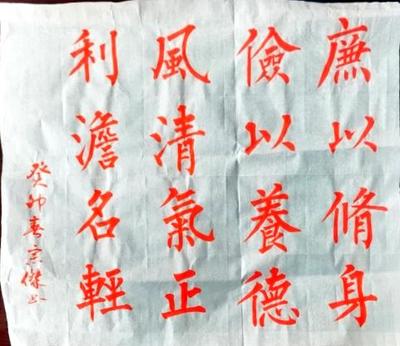 廉以脩身
儉以養德
風清氣正
利澹名輕
癸卯春宗傑书